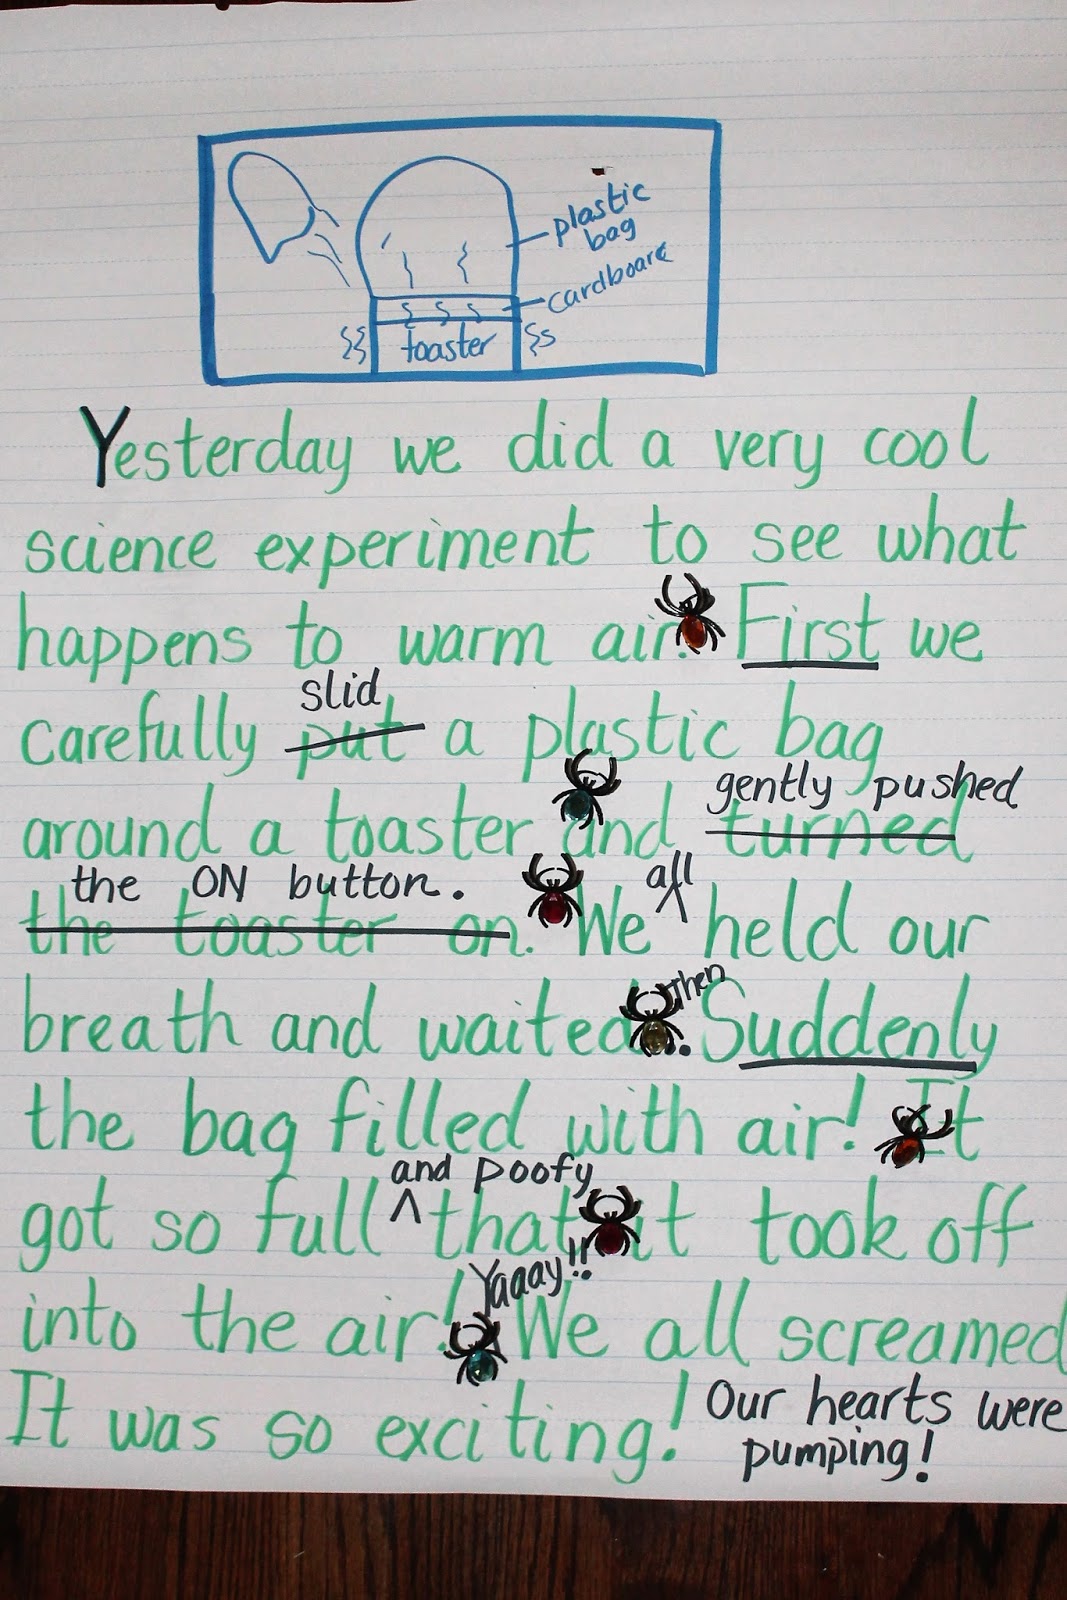 plastic
bag
cardboard
toaster
Yesterday we did a very cool
science experiment to see what
happens to warm air. First we
slid
carefully put a plastic bag
gently pushed
around a toaster and turned
the ON button. all
the toaster on. We held our
then
breath and waited. Suddenly
the bag filled with air! It
and poofy
got so full that it took off
Yaaay!!
into the air! We all screamed
It was so exciting! Our hearts were
pumping!